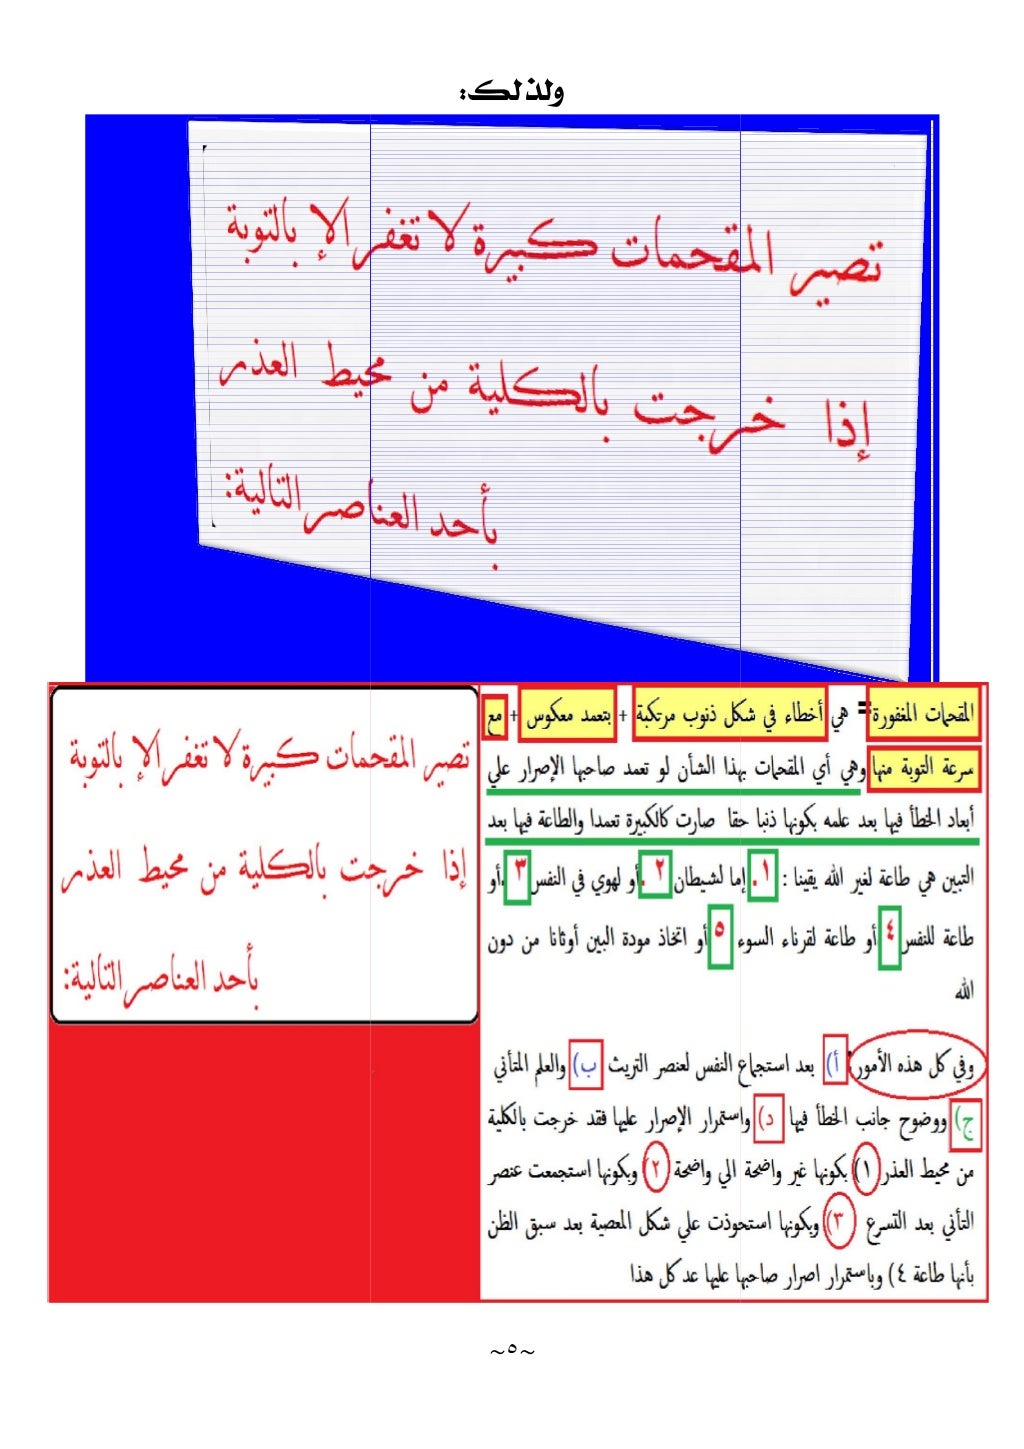 ولذلك:
تصير المقحمات كبيرة لا تغفر إلا بالتوبة
إذا خرجت بالكلية من محيط العذر
بأحد العناصر التالية:
المقحمات المغفورة = هي أخطاء في شكل ذنوب مرتكبة + بتعمد معكوس + مع
سرعة التوبة منها وهي أي المقحمات بهذا الشأن لو تعمد صاحبها الإصرار علي
أبعاد الخطأ فيها بعد علمه بكونها ذنبا حقا صارت كالكبيرة تعمدا والطاعة فيها بعد
التبين هي طاعة لغير الله يقينا : ١. إما لشيطان ٢. أو لهوي في النفس ٣. أو
طاعة للنفس ٤ أو طاعة لقرناء السوء ٥ أو اتخاذ مودة البين أوثانا من دون
الله
وفي كل هذه الأمور: أ) بعد استجماع النفس لعنصر التريث ب) والعلم المتأني
ج) ووضوح جانب الخطأ فيها د) واستمرار الإصرار عليها فقد خرجت بالكلية
من محيط العذر ١) بكونها غير واضحة الي واضحة ٢) وبكونها استجمعت عنصر
التأني بعد التسرع ٣) وبكونها استحوذت علي شكل المعصية بعد سبق الظن
بأنها طاعة ٤) وباستمرار اصرار صاحبها عليها عد كل هذا
تصير المقحمات كبيرة لا تغفر إلا بالتوبة
إذا خرجت بالكلية من محيط العذر
بأحد العناصر التالية:
~٥~